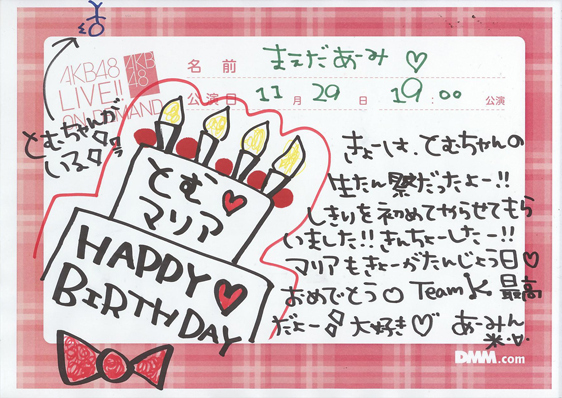 AKB48
LIVE!!
ON DEMAND
AKB
48
名前 まえだあーみ ♡
公演日 11月29日 19:00 公演
とむちゃんが
いる
とむ♥
マリア
HAPPY♥
BIRTHDAY
きょーは、とむちゃんの
生たん祭だったよー!!
しきりを初めてやらせてもら
いました!!きんちょーしたー!!
マリアもきょーがたんじょう日♡
おめでとう○ Team K 最高
だよー 大好き♡ あーみん
DMM.com